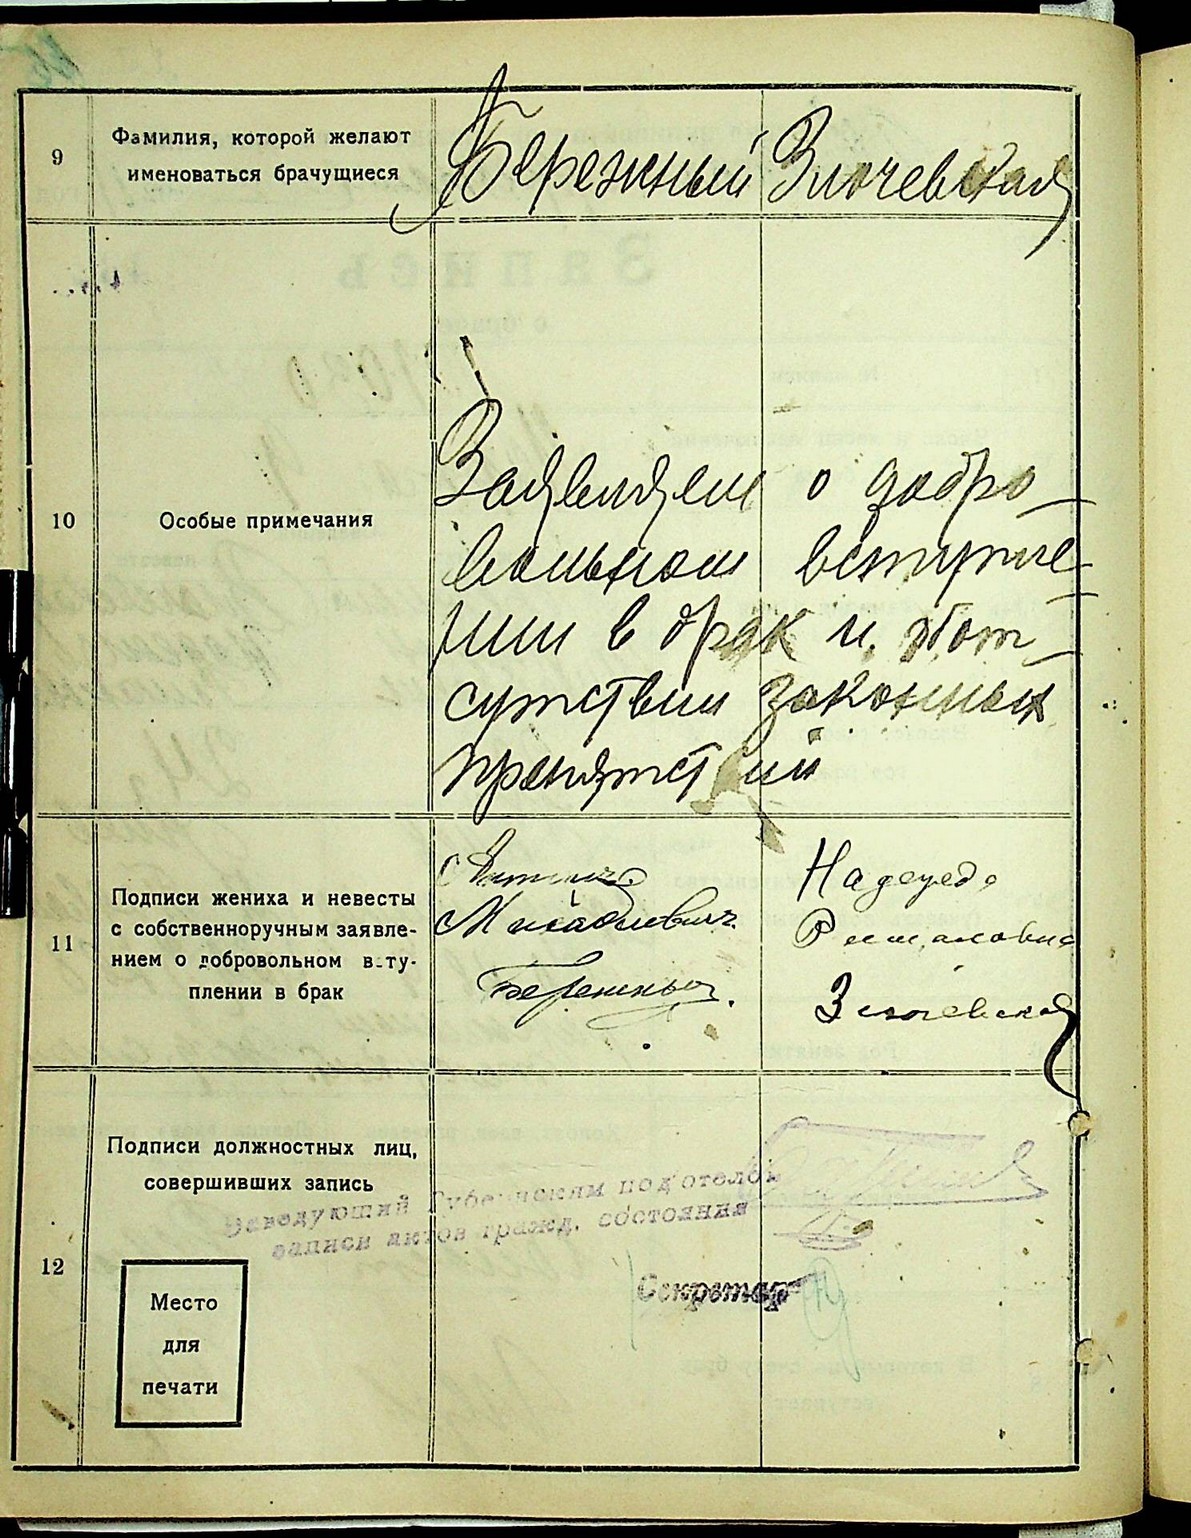 9
Фамилия, которой желают
именоваться брачущиеся
Бережный
Злочевская
10
Особые примечания
Заявляем о добро-
вольном вступле-
нии в брак и об от-
сутствии законных
препятствий
11
Подписи жениха и невесты
с собственноручным заявле-
нием о добровольном всту-
плении в брак
Михайлович
Бережной
Надежда
Злочевская
12
Подписи должностных лиц,
совершивших запись
Заведующий Губернским подотделом
записи актов гражд. состояния
Секретарь
Место
для
печати